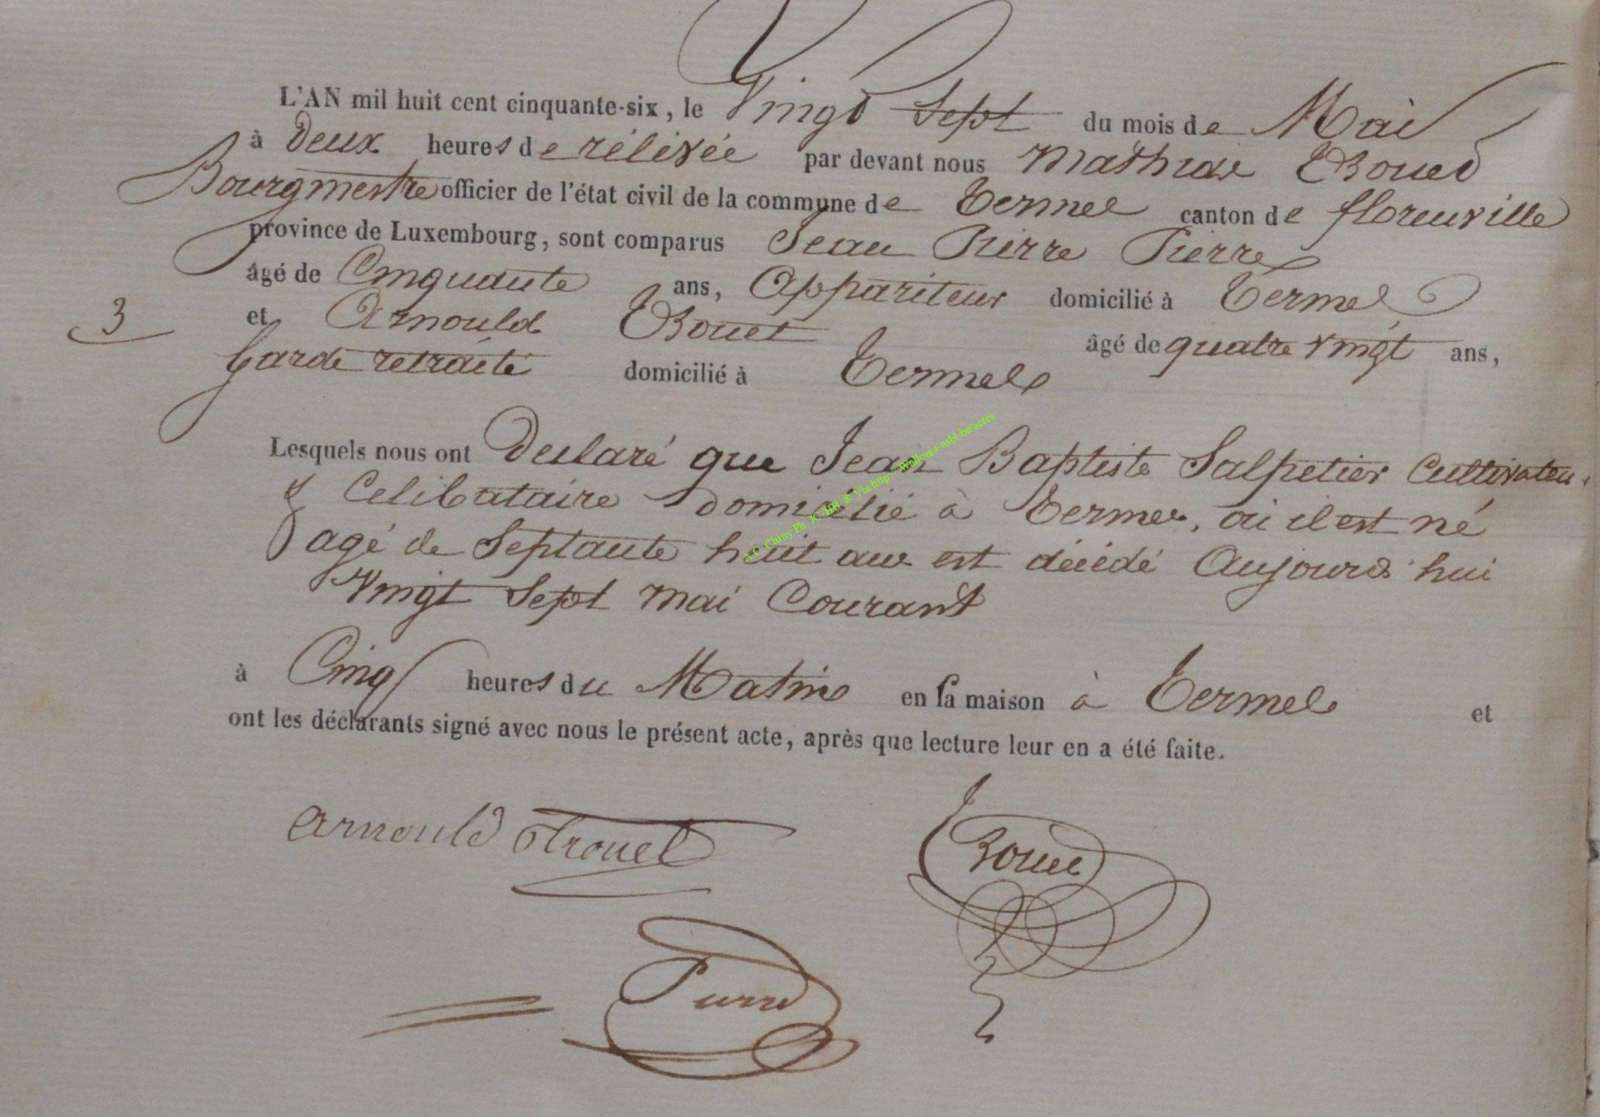 L'AN mil huit cent cinquante-six, le Vingt Sept du mois de Mai
à deux heures de rélévée par devant nous Mathieu
Bourgmestre officier de l'état civil de la commune de Termes canton de florenville
province de Luxembourg, sont comparus Jean Pierre Pierre
âgé de Cinquante ans, Appariteur domicilié à Termes
3 et Arnould âgé de quatre vingt ans,
Garde retraité domicilié à Termes
Lesquels nous ont Declaré que Jean Baptiste Salpetier Cultivateur
& Celibataire domicilié à Termes, où il est né
agé de Septante huit ans est décédé Aujourd'hui
Vingt Sept mai Courant
à Cinq heures du Matin en sa maison à Termes et
ont les déclarants signé avec nous le présent acte, après que lecture leur en a été faite.
Arnould
Pierre